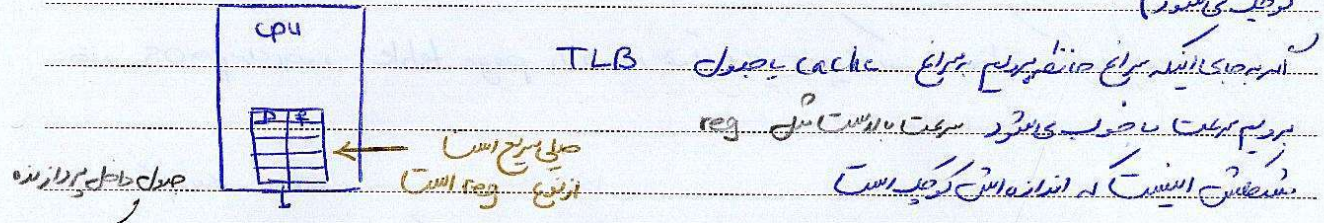 کوچک می شود)
cpu
اگر به جای اینکه سراغ حافظه برویم به سراغ cache یا جدول TLB
برویم سرعت ما خوب می شود سرعت بالاست مثل reg
مشکلش اینست که اندازه اش کوچک است
P F
خیلی سریع است
از نوع reg است
جدول داخل پردازنده